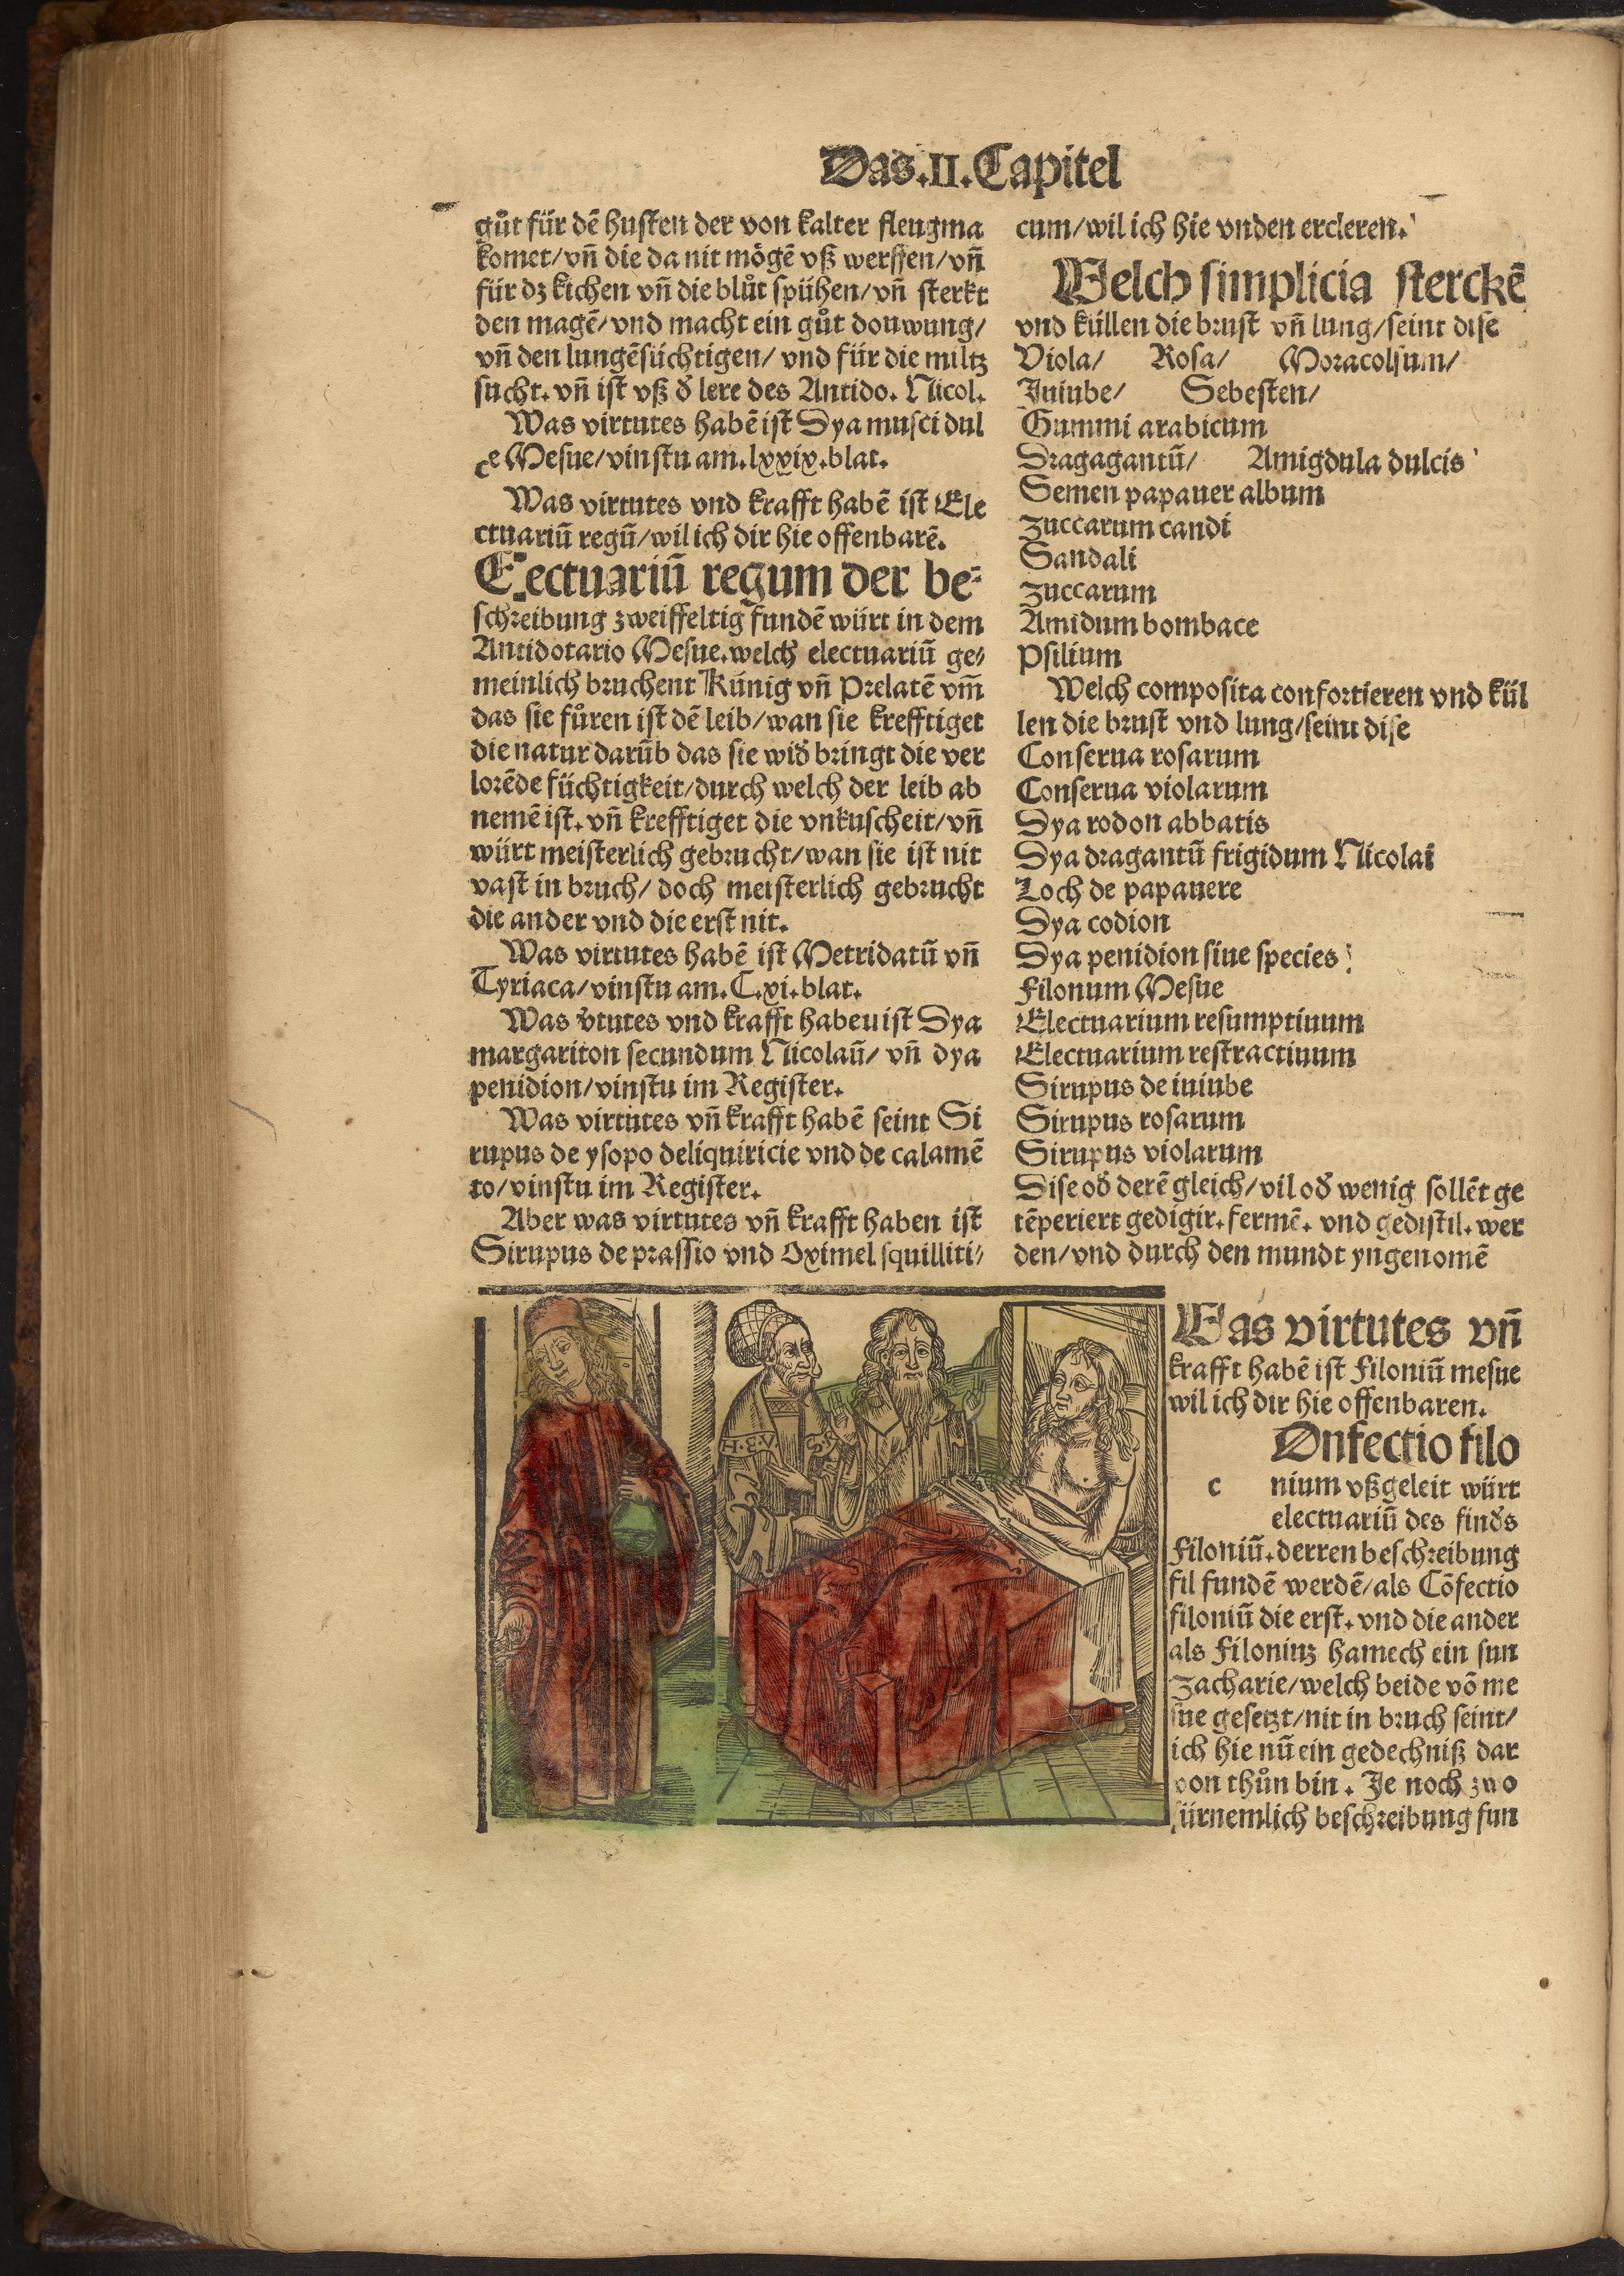 Das.II.Capitel
gůt für dē husten der von kalter fleugma
komet/vn̄ die da nit mögē vß werffen/vn̄
für dz kichen vn̄ die blůt spühen/vn̄ sterkt
den magē/vnd macht ein gůt douwung/
vn̄ den lungēsüchtigen/vnd für die miltz
sucht. vn̄ ist vß d̕ lere des Antido. Nicol.
Was virtutes habē ist Dya musci dul
ce Mesue/vinstu am.lxxix.blat.
Was virtutes vnd krafft habē ist Ele
ctuariū regū/wil ich dir hie offenbarē.
Electuariū regum der be⸗
schreibung zweiffeltig fundē würt in dem
Antidotario Mesue.welch electuariū ge/
meinlich bruchent Künig vn̄ Prelatē vm̄
das sie fůren ist dē leib/wan sie krefftiget
die natur darūb das sie wid̕ bringt die ver
lorēde füchtigkeit/durch welch der leib ab
nemē ist. vn̄ krefftiget die vnkuscheit/vn̄
würt meisterlich gebrucht/wan sie ist nit
vast in bruch/doch meisterlich gebrucht
die ander vnd die erst nit.
Was virtutes habē ist Metridatū vn̄
Tyriaca/vinstu am.C.xi.blat.
Was v̕tutes vnd krafft habeu ist Dya
margariton secundum Nicolaū/vn̄ dya
penidion/vinstu im Register.
Was virtutes vn̄ krafft habē seint Si
rupus de ysopo deliquiricie vnd de calamē
to/vinstu im Register.
Aber was virtutes vn̄ krafft haben ist
Sirupus de prassio vnd Oximel squilliti/
cum/wil ich hie vnden ercleren.
Welch simplicia sterckē
vnd küllen die brust vn̄ lung/seint dise
Viola/ Rosa/ Moracolsum/
Juiube/ Sebesten/
Gummi arabicum
Dragagantū/ Amigdula dulcis
Semen papauer album
zuccarum candi
Sandali
zuccarum
Amidum bombace
Psilium
Welch composita confortieren vnd kül
len die brust vnd lung/seint dise
Conserua rosarum
Conserua violarum
Dya rodon abbatis
Dya dragantū frigidum Nicolai
Loch de papauere
Dya codion
Dya penidion sine species
Filonum Mesue
Electuarium resumptiuum
Electuarium restractiuum
Sirupus de iuiube
Sirupus rosarum
Sirupus violarum
Dise od̕ derē gleich/vil od̕ wenig sollēt ge
tēperiert gedigir. fermē. vnd gedistil. wer
den/vnd durch den mundt yngenomē
H.E.V. SR
Was virtutes vn̄
krafft habē ist Filoniū mesue
wil ich dir hie offenbaren.
Onfectio filo
c nium vßgeleit würt
electuariū des find̕s
Filoniū.derren beschreibung
fil fundē werdē/als Cōfectio
filoniū die erst. vnd die ander
als Filoninz hamech ein sun
zacharie/welch beide vō me
sue gesetzt/nit in bruch seint/
ich hie nū ein gedechniß dar
von thůn bin. Je noch zwo
fürnemlich beschreibung fun